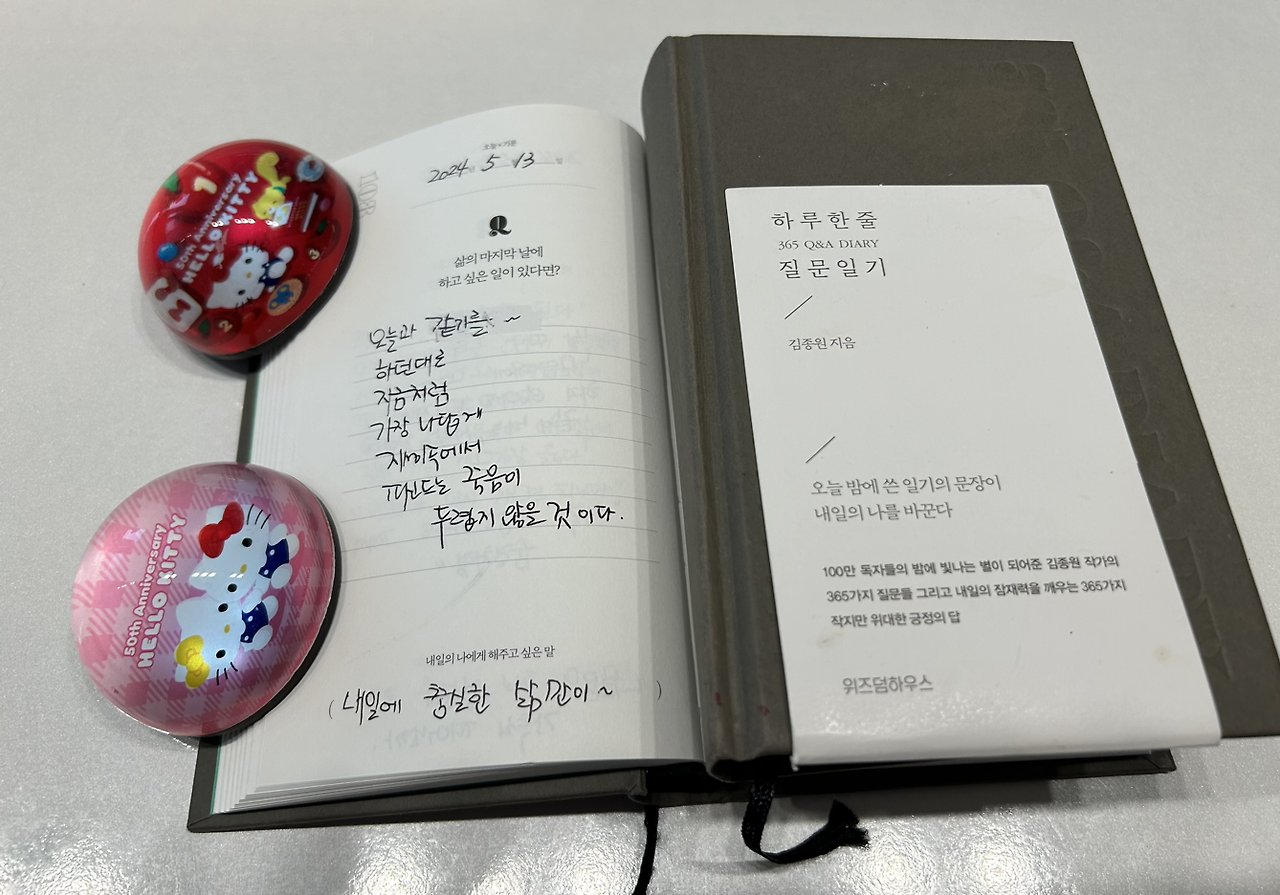 오늘의 기분
2024 5 13
삶의 마지막 날에
하고 싶은 일이 있다면?
오늘과 같기를 ~
하던대로
지금처럼
가장 나답게
재미속에서
파묻드는 죽음이
두렵지 않을 것 이다.
내일의 나에게 해주고 싶은 말
( 내일에 충실한 삶 ~ )
하루한줄
365 Q&A DIARY
질문일기
김종원 지음
오늘 밤에 쓴 일기의 문장이
내일의 나를 바꾼다
100만 독자들의 밤에 빛나는 별이 되어준 김종원 작가의
365가지 질문들 그리고 내일의 잠재력을 깨우는 365가지
작지만 위대한 긍정의 답
위즈덤하우스
50th Anniversary
HELLO KITTY
1
2
3
50th Anniversary
HELLO KITTY